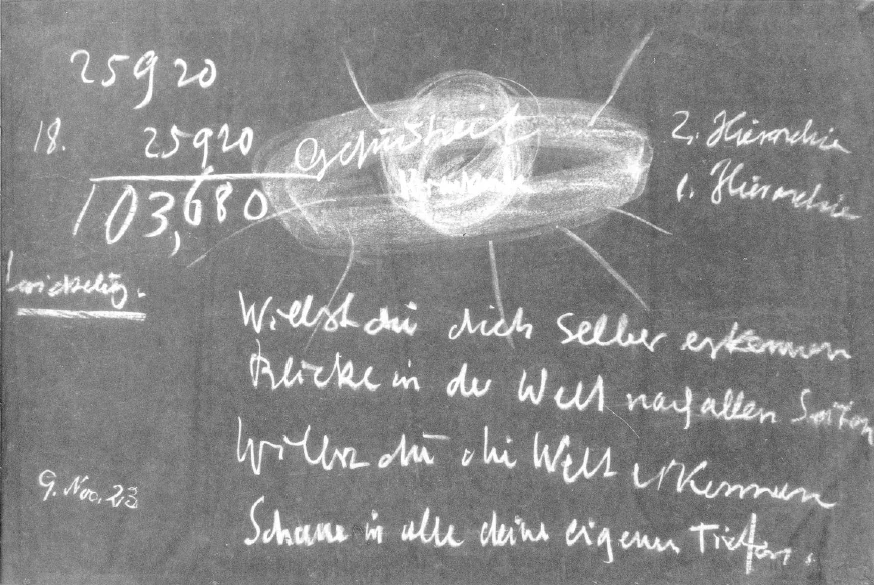 25920
18. 25920
103,680
Gesundheit
Krankheit
2. Hierarchie
1. Hierarchie
wickelung.
Willst du dich selber erkennen
Blicke in der Welt nach allen Seiten
Willst du die Welt erkennen
Schaue in alle deine eigenen Tiefen.
9. Nov. 23